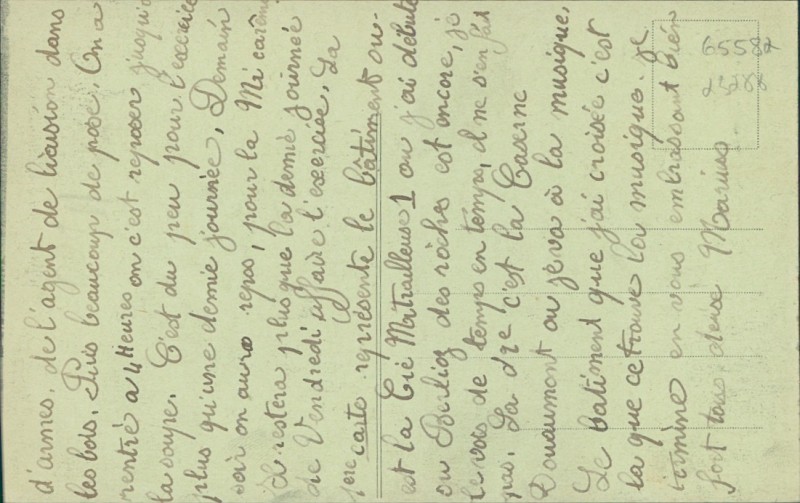 d'armes, de l'agent de liaison dans
les bois. Puis beaucoup de pose. On a
rentré a 4 Heures on c'est reposer jusqu'à
la soupe. C'est du peu pour l'exercice
plus qu'une demie journée. Demain
soir on aura repos, pour la Mi carême
il restera plus que la demie journée
de Vendredi affaire l'exercise. La
1ere carte représente le bâtiment ou
est la Cie Mitrailleuse 1 ou j'ai débuté
ou Berlioz des roches est encore, je
le vois de temps en temps, il ne s'en fait
pas. La 2re c'est la Caserne
Douaumont ou je va à la musique.
Le batiment que j'ai croisée c'est
la que ce trouve la musique. Je
termine en vous embrassant bien
fort tous deux Marius.
65582